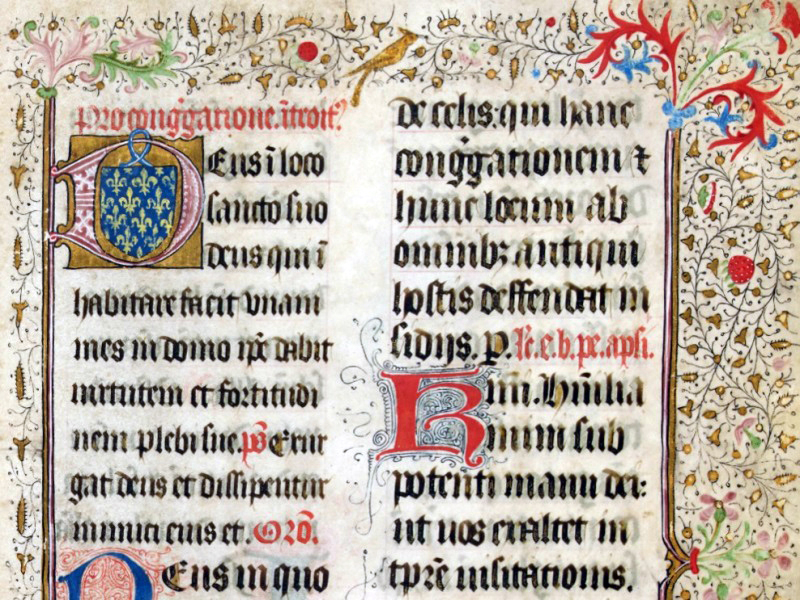 Pro cong̃gatione. ĩtroit̃
Deus ĩ loco
sancto suo
deus qui ĩ
habitare facit vnani
mes in domo ip̃e dabit
uirtutem et fortitudi
nem plebi sue. p̃s Exur
gat deus et dissipentur
inimici eius et. Orõ.
Deus in quo
de celis: qui hanc
cong̃gationem ⁊
hunc locum ab
omnibꝫ antiqui
hostis deffendat in
sidijs. p. le. e. b. pe. apl̃i.
Km̃. Hũilia
mini sub
potenti manu dei:
ut uos exaltet in
tp̃re uisitationis.